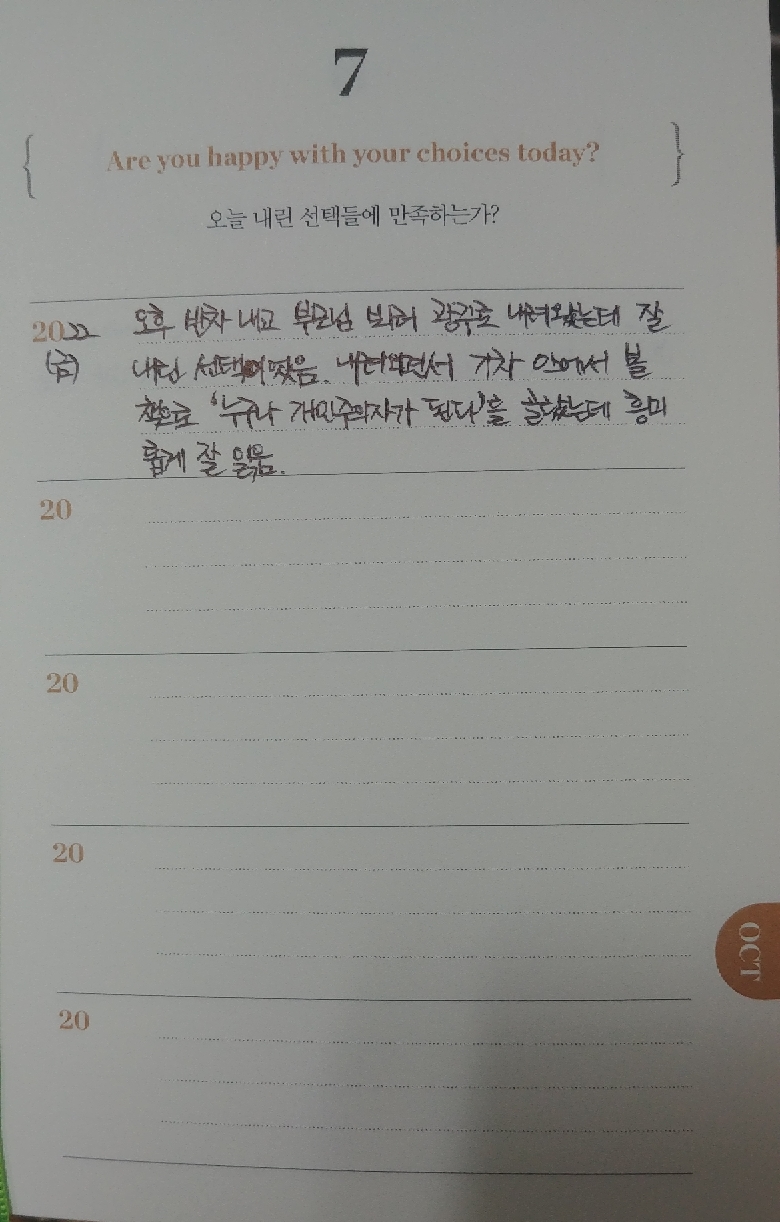 7
Are you happy with your choices today?
오늘 내린 선택들에 만족하는가?
2022 오후 반차 내고 부모님 보러 광주로 내려왔는데 잘
(금) 내린 선택이었음. 내려오면서 기차 안에서 볼
책으로 '누구나 개인주의자가 된다'를 골랐는데 흥미
롭게 잘 읽음.
20
20
20
OCT
20